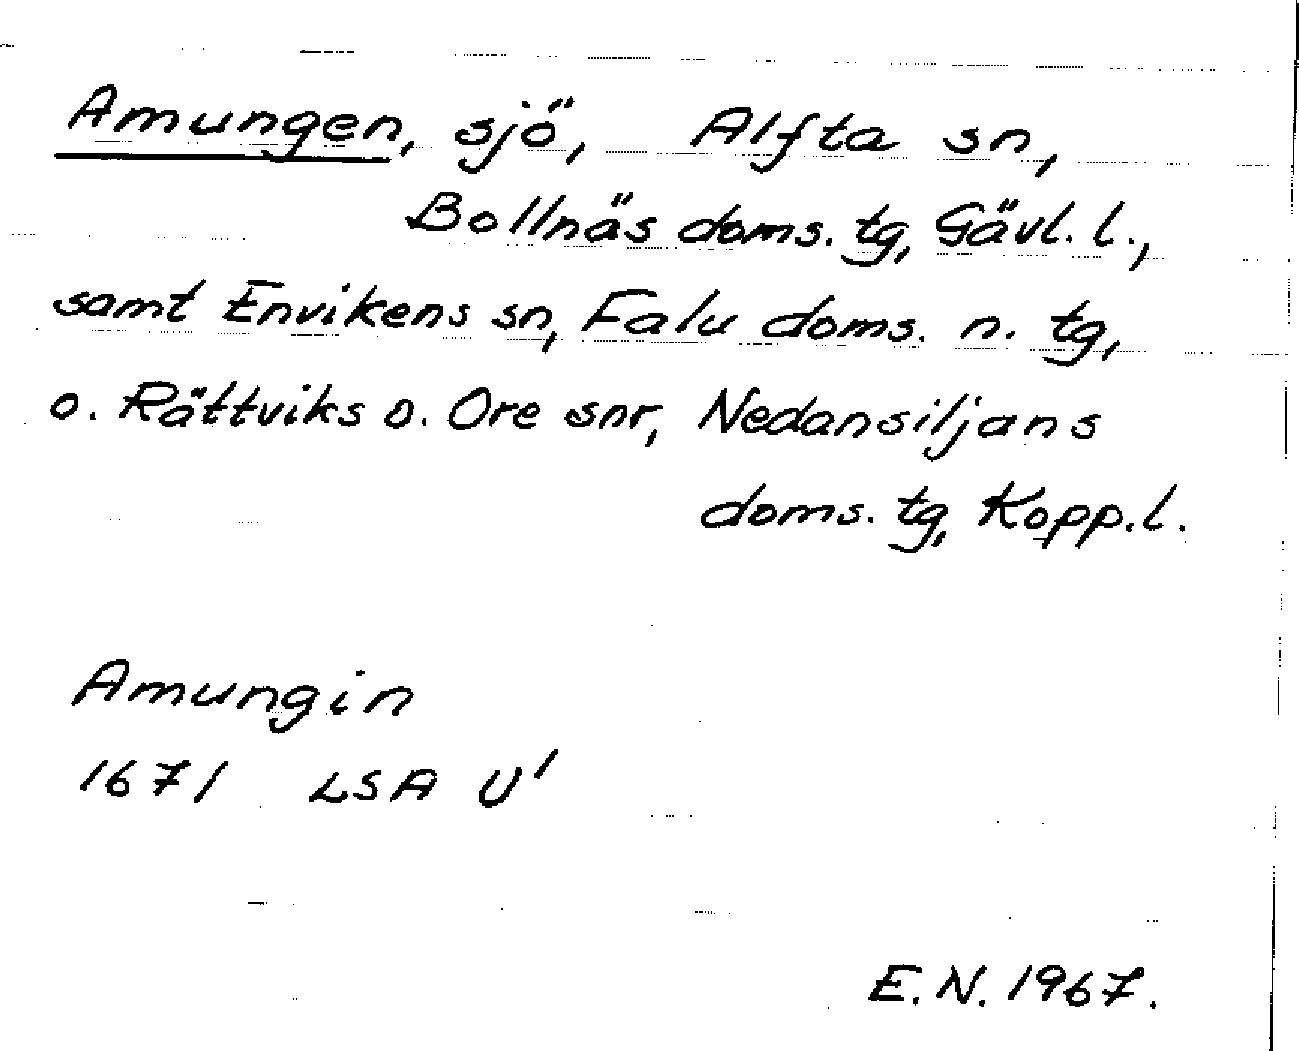 Amungen, sjö, Alfta sn,
Bollnäs doms. tg, Gävl. l.,
samt Envikens sn, Falu doms. n. tg,
o. Rättviks o. Ore snr, Nedansiljans
doms. tg, Kopp. l.
Amungin
1671 LSA U'
E.N. 1967.